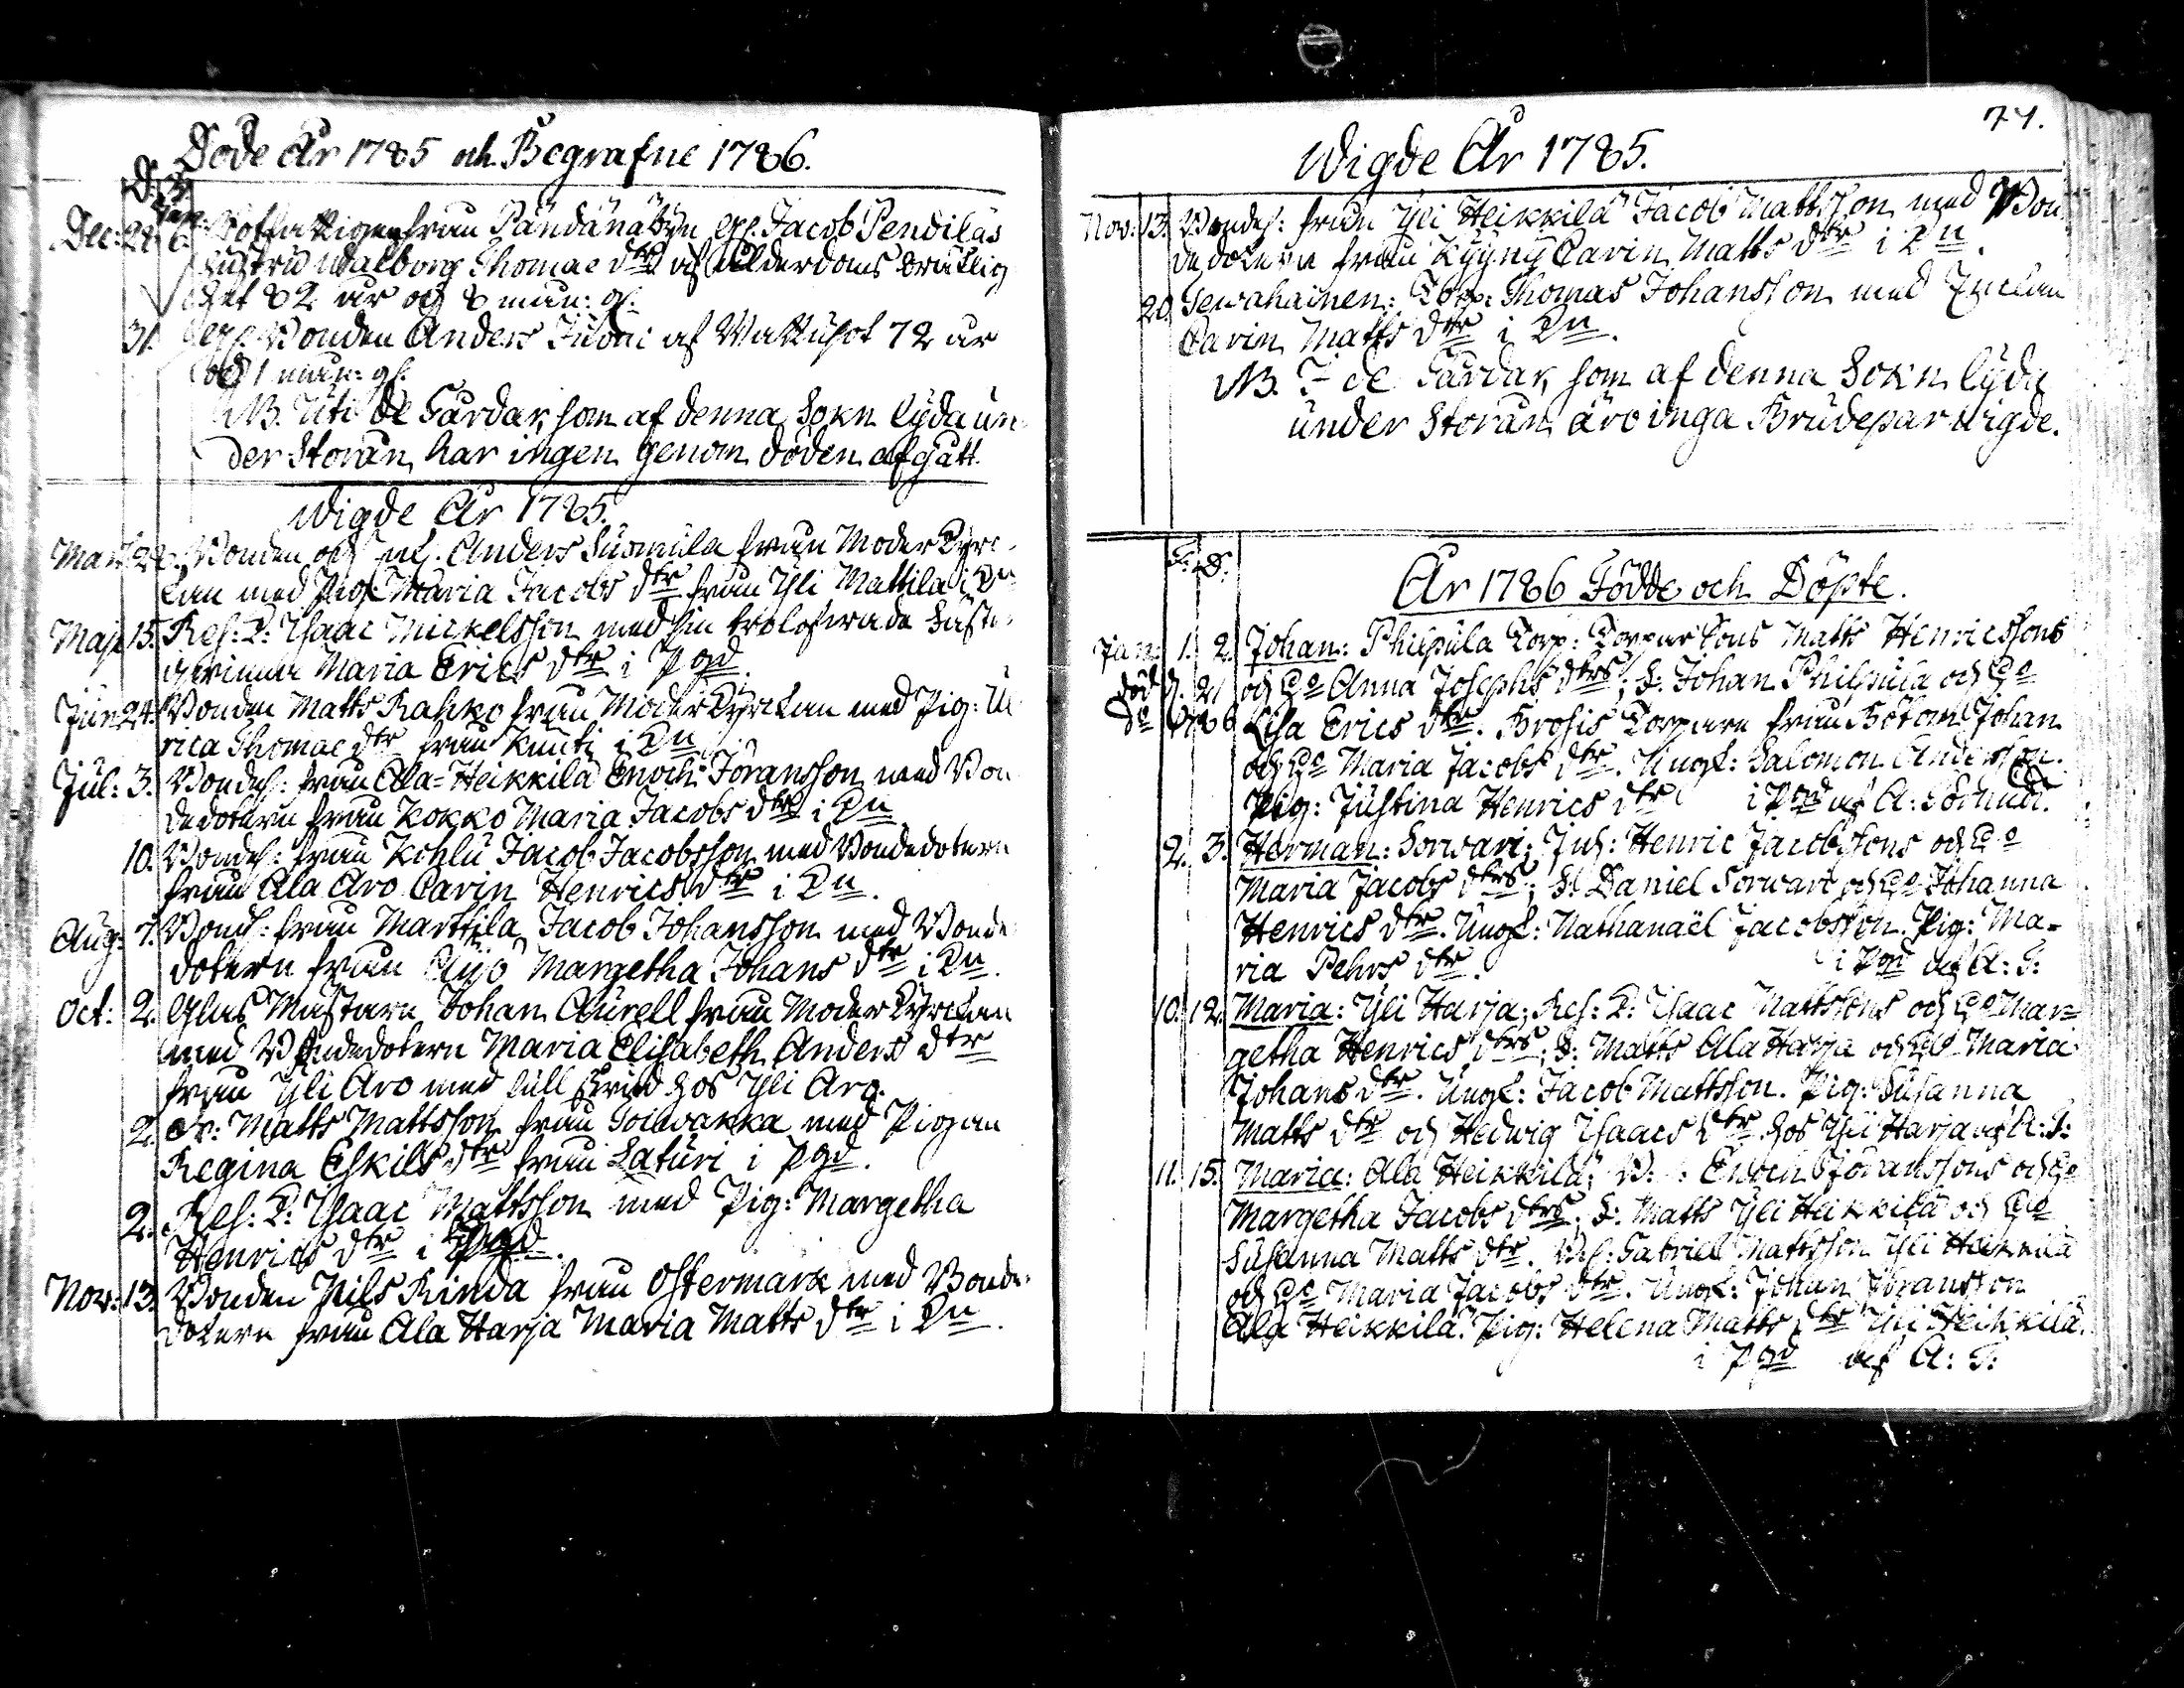 Döde År 1785 och Begrafne 1786.
D. B.
Jan:
Dec: 28 6. från Pändänäbyn Jacob Pendiläs
hustru Walborg Thomae dtr af ålderdoms bräcklig
het 82 år och 8 mån: gl.
31. Bonden Anders af 72 år
och 1 mån: gl.
NB. Uti de Gårdar, som af denna Sokn lyda un
der Storån, har ingen genom döden afgått.
Wigde År 1785.
Mart: 28. Bonden och Anders från Moder Kyrc
kan med Pig: Maria Jacobs dtr från Yli Mattila i Kn
Maji 15. Res: S: Isaac Mickelsson med sin trolofwade fäste
qwinna Maria Erics dtr i Pgd.
Jun: 24. Bonden Matts Rahko från Moder Kyrckan med Pig: Ul
rica Thomae dtr från Knuti i Kn
Jul: 3. Bondes: från Ala-Heikkilä Enoch Jöransson med Bon
dedotern från Kokko Maria Jacobs dtr i Kn
10. Bondes: från Jacob Jacobsson med Bondedotern
från Ala Aro Carin Henrics dtr i Kn.
Aug: 7. Bond: från Marttila Jacob Johansson med Bonde
dotern från Äijö Margetha Johans dtr i Kn.
Oct: 2. Glas Mästaren Johan Aurell från Moder Kyrckan
med Bondedotern Maria Elisabeth Anders dtr
från Yli Aro med hos Yli Aro.
2. Dr: Matts Mattsson från med Pigan
Regina Eskils dtr från Laturi i Pgd.
2. Res: S: Isaac Mattsson med Pig: Margetha
Henrics dtr i Pgd.
Nov: 13. Bonden Nils Rinda från Ostermark med Bonde
dotern från Ala Harja Maria Matts dtr i Kn.
71.
Wigde År 1785.
Nov: 13. Bondes: från Yli Heikkilä Jacob Mattsson med Bon
dedotern från Kyyny Carin Matts dtr i Kn.
20. Torp: Thomas Johansson med Enckan
Carin Matts dtr i Kn.
NB. I de Gårdar, som af denna Sokn lyda
under Storån, äro inga Brudepar wigde.
F. D.
År 1786 Födde och Döpte.
Jan: 1. 2. Johan: Philpula Torp: Torpar Sons Matts Henricssons
död d. 21 och H:o Anna Josephs dtrs; S: Johan Philpula och H:o
Do 1786 Lisa Erics dtr. Brofis Torparen från Botom Johan
och H:o Maria Jacobs dtr. Ungk: Salomon Andersson.
Pig: Justina Henrics dtr i Pgd af A:
2. 3. Herman: Sorwari; Inh: Henric Jacobssons och H:o
Maria Jacobs dtrs; S: Daniel Sorwari och H:o Johanna
Henrics dtr. Ungk: Nathanaël Jacobsson. Pig: Ma-
ria Pehrs dtr. i Pgd af A: S:
10. 12. Maria: Yli Harja; Res: S: Isaac Mattssons och H:o Mar=
getha Henrics dtrs; S: Matts Ala Harja och H:o Maria
Johans dtr. Ungk: Jacob Mattsson. Pig: Susanna
Matts dtr och Hedwig Isaacs dtr hos Yli Harja af A: S:
11. 15. Maria: Ala Heikkilä; Enoch Jöranssons och H:o
Margetha Jacobs dtrs; S: Matts Yli Heikkilä och H:o
Susanna Matts dtr. Gabriel Mattsson Yli Heikkilä
och H:o Maria Jacobs dtr. Ungk: Johan Jöransson
Ala Heikkilä. Pig: Helena Matts dtr Yli Heikkilä.
i Pgd af A: S: